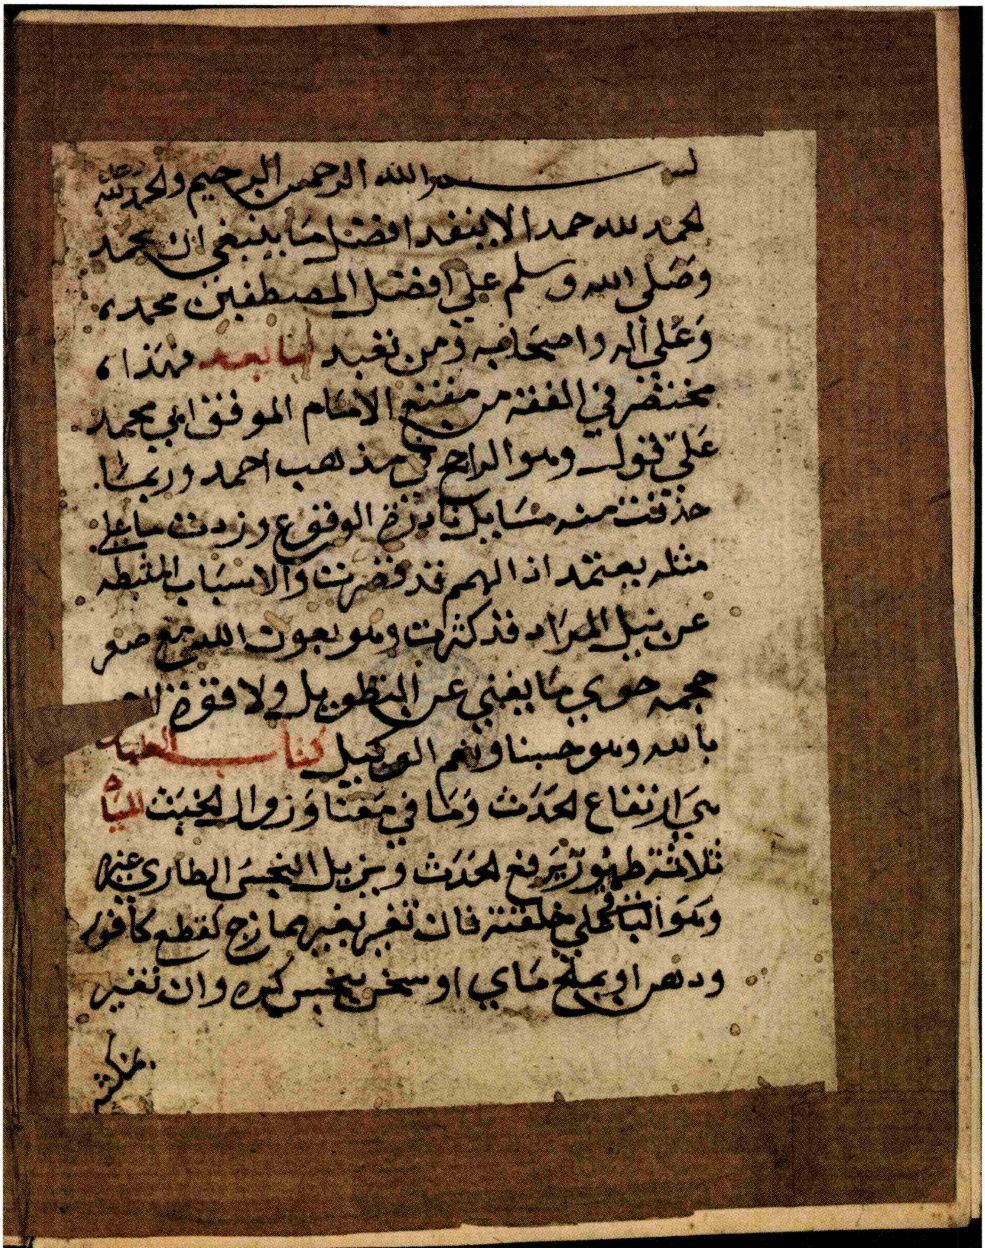 بسم الله الرحمن الرحيم والحمد لله
الحمد لله حمدا لا ينفد افضل ما ينبغي ان يحمد
وصلى الله وسلم على افضل المصطفين محمد،
وعلى اله واصحابه ومن تعبد اما بعد فهذا،
مختصر في الفقه من مقنع الامام الموفق ابي محمد
على قول وهو الراجح في مذهب احمد وربما
حذفت منه مسايل نادرة الوقوع وزدت ما على
مثله يعتمد اذ الهمم قد قصرت والاسباب المثبطه
عن نيل المراد قد كثرت وهو بعون الله مع صغر
حجمه حوى ما يغني عن التطويل ولا قوة الا
بالله وهو حسبنا ونعم الوكيل كتاب الطهارة
هي ارتفاع الحدث وما في معناه وزوال الخبث المياه
ثلاثة طهور يرفع الحدث ويزيل النجس الطاري غيره
وهو الباقي على خلقته فان تغير بغير ممازج كقطع كافور
ودهن او بملح ماي او سخن بنجس كره وان تغير
بمكثه